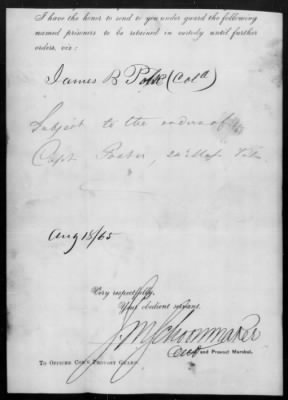 I have the honor to send to you under guard the following
named prisoners to be retained in custody until further
orders, viz:
James B Polk (Cold)
Subject to the orders of
Capt. Foster, 2d Mass
Aug 18/65
Very respectfully,
Your obedient servant,
J. M. Schoonmaker
and Provost Marshal.
TO OFFICER COM'G PROVOST GUARD.